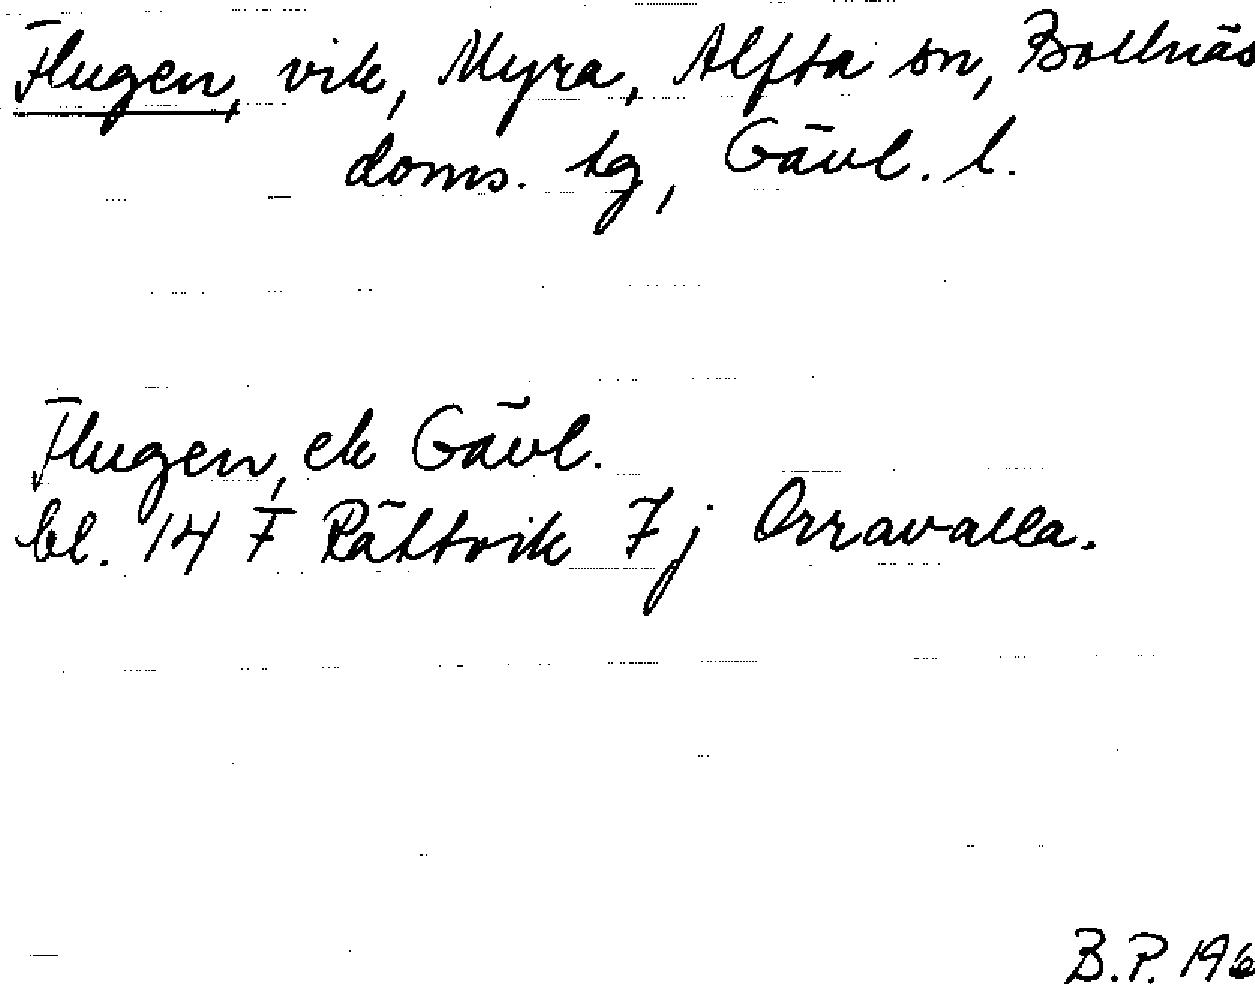 Flugen, vik, Myra, Alfta sn, Bollnäs
doms. tg, Gävl. l.
Flugen, ek Gävl.
bl. 14 F Rättvik 7j Orravalla.
B.P. 196